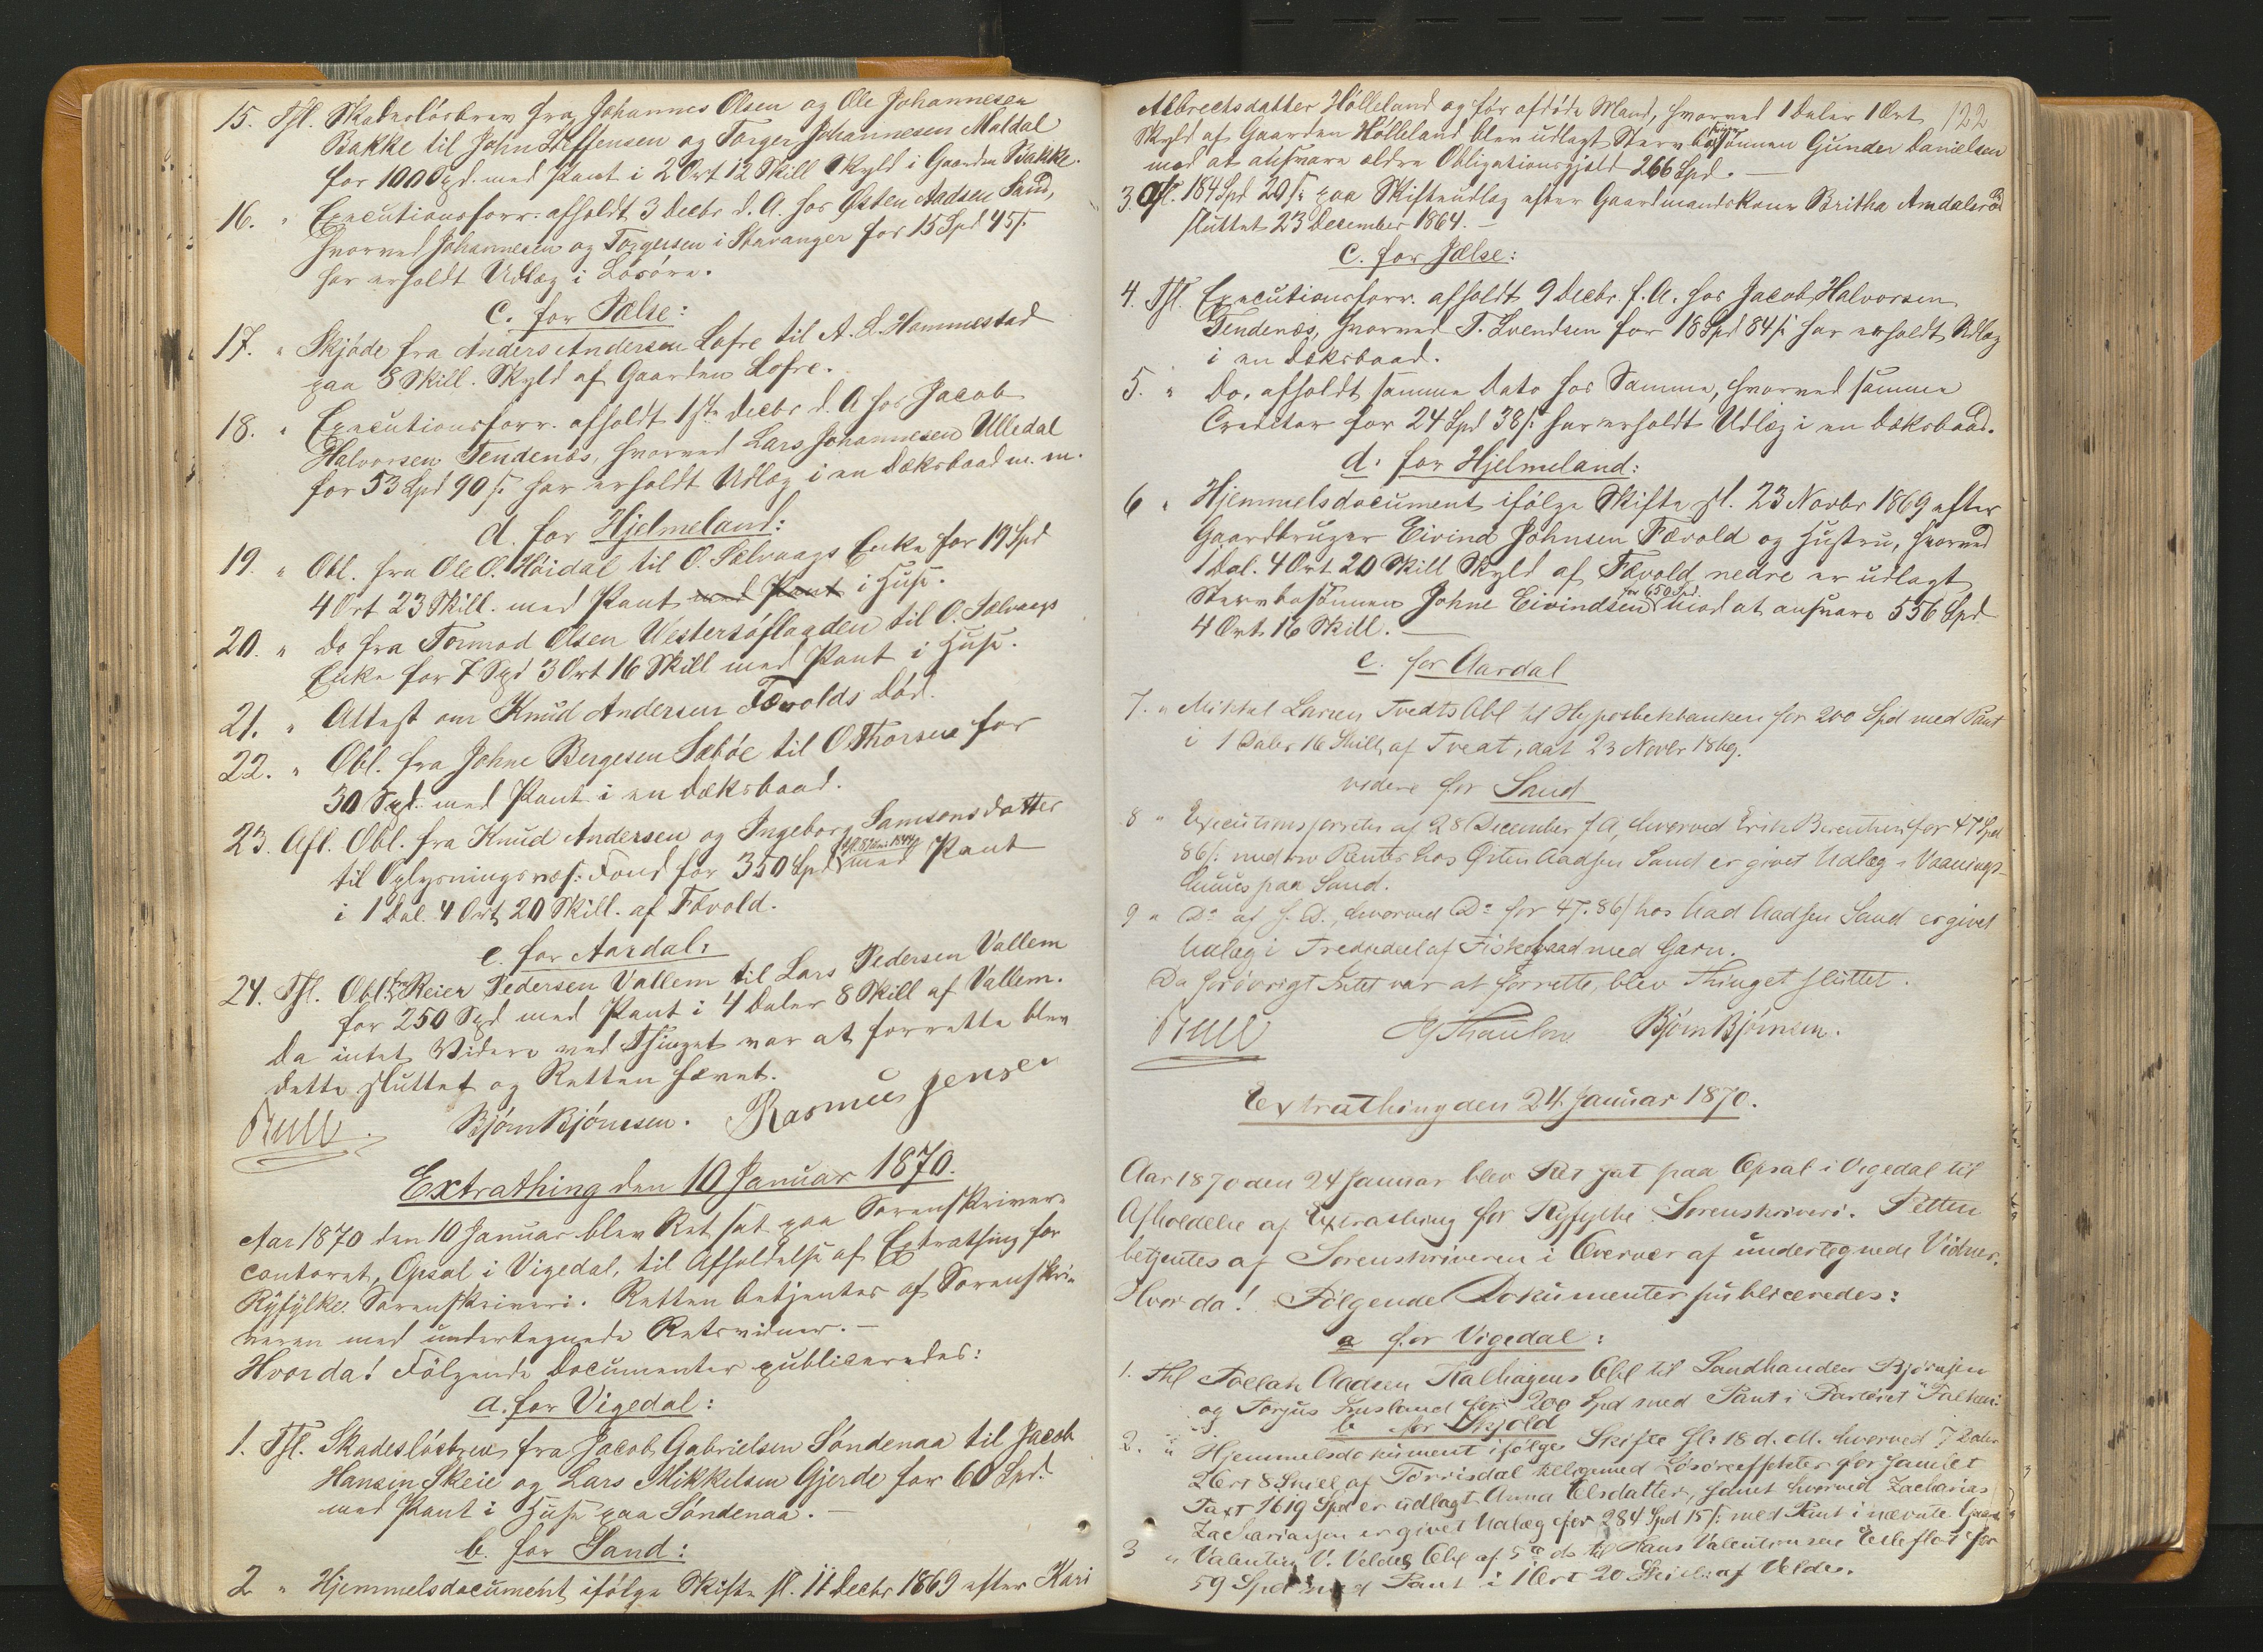 15. Tfl. Skadesløsbrev fra Johannes Olsen og Ole Johannesen
Bakke til John Steffensen og Torger Johannesen Maldal
for 100 Spd. med Pant i 2 Ort 12 Skill Skyld i Gaarden Bakke.
16. " Executionsforr. afholdt 3 Decbr d. A. hos Østen Aadsen Sand,
hvorved Johannesen og Torgersen i Stavanger for 15 Spd 45 s.
har erholdt Udlæg i Løsøre.
c. for Jælse:
17. " Skjøde fra Anders Andersen Lofre til A. L. Hammestad
paa 8 Skill. Skyld af Gaarden Lofre.
18. " Executionsforr. afholdt 1ste Decbr d. A hos Jacob
Halvorsen Tendenæs, hvorved Lars Johannesen Ulledal
for 53 Spd 90 s. har erholdt Udlæg i en Dæksbaad m. m.
d. for Hjelmeland:
19. " Obl. fra Ole O. Høidal til O. Sælvaags Enke for 19 Spd
4 Ort 23 Skill. med Pant med Pant i Huse.
20. " do fra Tormod Olsen Westersøflagden til O. Sælvaags
Enke for 7 Spd 3 Ort 16 Skill med Pant i Huse.
21. " Attest om Knud Andersen Fævolds Død.
22. " Obl. fra Johne Bergesen Sæbøe til O. Thorsen for
30 Spd. med Pant i en Dæksbaad.
23. Afl. Obl. fra Knud Andersen og Ingeborg Samsonsdatter
til Oplysningsvæs. Fond for 350 Spd med Pant
i 1 Dal. 4 Ort 20 Skill. af Fævold.
e. for Aardal:
24. Tfl. Obl. fra Reier Pedersen Vallem til Lars Pedersen Vallem
for 250 Spd med Pant i 4 Daler 8 Skill af Vallem.
Da intet Videre ved Thinget var at forrette blev
dette sluttet og Retten hævet.
Bjørn Bjørnsen. Rasmus Jensen
Extrathing den 10 Januar 1870.
Aar 1870 den 10 Januar blev Ret sat paa Sorenskriver-
contoret, Opsal i Vigedal, til Afholdelse af Extrathing for
Ryfylke Sorenskriveri. Retten betjentes af Sorenskri-
veren med undertegnede Retsvidner.—
Hvorda! Følgende Documenter publiceredes:
a. for Vigedal:
1. Tfl. Skadesløsbrev fra Jacob Gabrielsen Søndenaa til Jacob
Hansen Skeie og Lars Mikkelsen Gjerde for 60 Spd.
med Pant i Huse paa Søndenaa.—
b. for Sand:
2 " Hjemmelsdocument ifølge Skifte sl. 11 Decbr 1869 efter Kari
122
Albrechtsdatter Hølleland og før afdøde Mand, hvorved 1 Daler 1 Ort
Skyld af Gaarden Hølleland blev udlagt Stervbosønnen Gunder Danielsen
mod at ansvare ældre Obligationsgjæld 266 Spd.—
3. Afl. 184 Spd 20 s. paa Skifteudlæg efter Gaardmandskone Britha Amdalsrød
sluttet 23 December 1864.—
c. for Jælse:
4. Tfl. Executionsforr. afholdt 9 Decbr. f. A. hos Jacob Halvorsen
Tendenæs, hvorved T. Svendsen for 18 Spd 84 s. har erholdt Udlæg
i en Dæksbaad.
5. " Do. afholdt samme Dato hos Samme, hvorved samme
Creditor for 24 Spd 38 s. har erholdt Udlæg i en Dæksbaad.
d. for Hjelmeland:
6 " Hjemmelsdocument ifølge Skifte sl. 23 Novbr 1869 efter
Gaardbruger Eivind Johnsen Fævold og Hustru, hvorved
1 Dal. 4 Ort 20 Skill Skyld af Fævold nedre er udlagt
Stervbosønnen Johne Eivindsen for 650 Spd. mod at ansvare 556 Spd
4 Ort 16 Skill.—
e. for Aardal
7. " Mikkel Larsen Tvedts Obl til Hypothekbanken for 200 Spd med Pant
i 1 Daler 16 Skill, af Tveat, dat 23 Novbr 1869.
videre for Sand
8 " Executionsforretn af 28 December f A, hvorved Erik Berentsen for 47 Spd
86 s. med Renter hos Østen Aadsen Sand er givet Udlæg i Vaanings-
huus paa Sand.
9 " Do af s. D., hvorved Do for 47. 86 s hos Aad Aadsen Sand er givet
Udlæg i Trediedeel af Fiskebaad med Garn.
Da forøvrigt Intet var at forrette, blev Thinget sluttet.
Bjørn Bjørnsen.
Extrathing den 24. Januar 1870.
Aar 1870 den 24 Januar blev Ret sat paa Opsal i Vigedal til
Afholdelse af Extrathing for Ryfylke Sorenskriveri. Retten
betjentes af Sorenskriveren i Overvær af undertegnede Vidner.
Hvorda! Følgende Dokumenter publiceredes:
a for Vigedal:
1. Thl Tollak Aadsen Kalhagens Obl til Landhandler Bjørnsen
og Torjus Løsland for 200 Spd med Pant i Fartøiet
b for Skjold
2. " Hjemmelsdokument ifølge Skifte sl: 18 d. M. hvorved 7 Daler
2 Ort 8 Skill af Tørrisdal tilligemed Løsøreeffekter for samlet
Taxt 1619 Spd er udlagt Anna Olsdatter, samt hvorved Zacharias
Zachariassen er givet Udlæg for 284 Spd 15 s: med Pant i nævnte Gaard
3 " Valentin V. Veldes Obl af 5te ds til Hans Valentinsen Østeflot for
59 Spd med Pant i 1 Ort 20 Skill: af Velde.